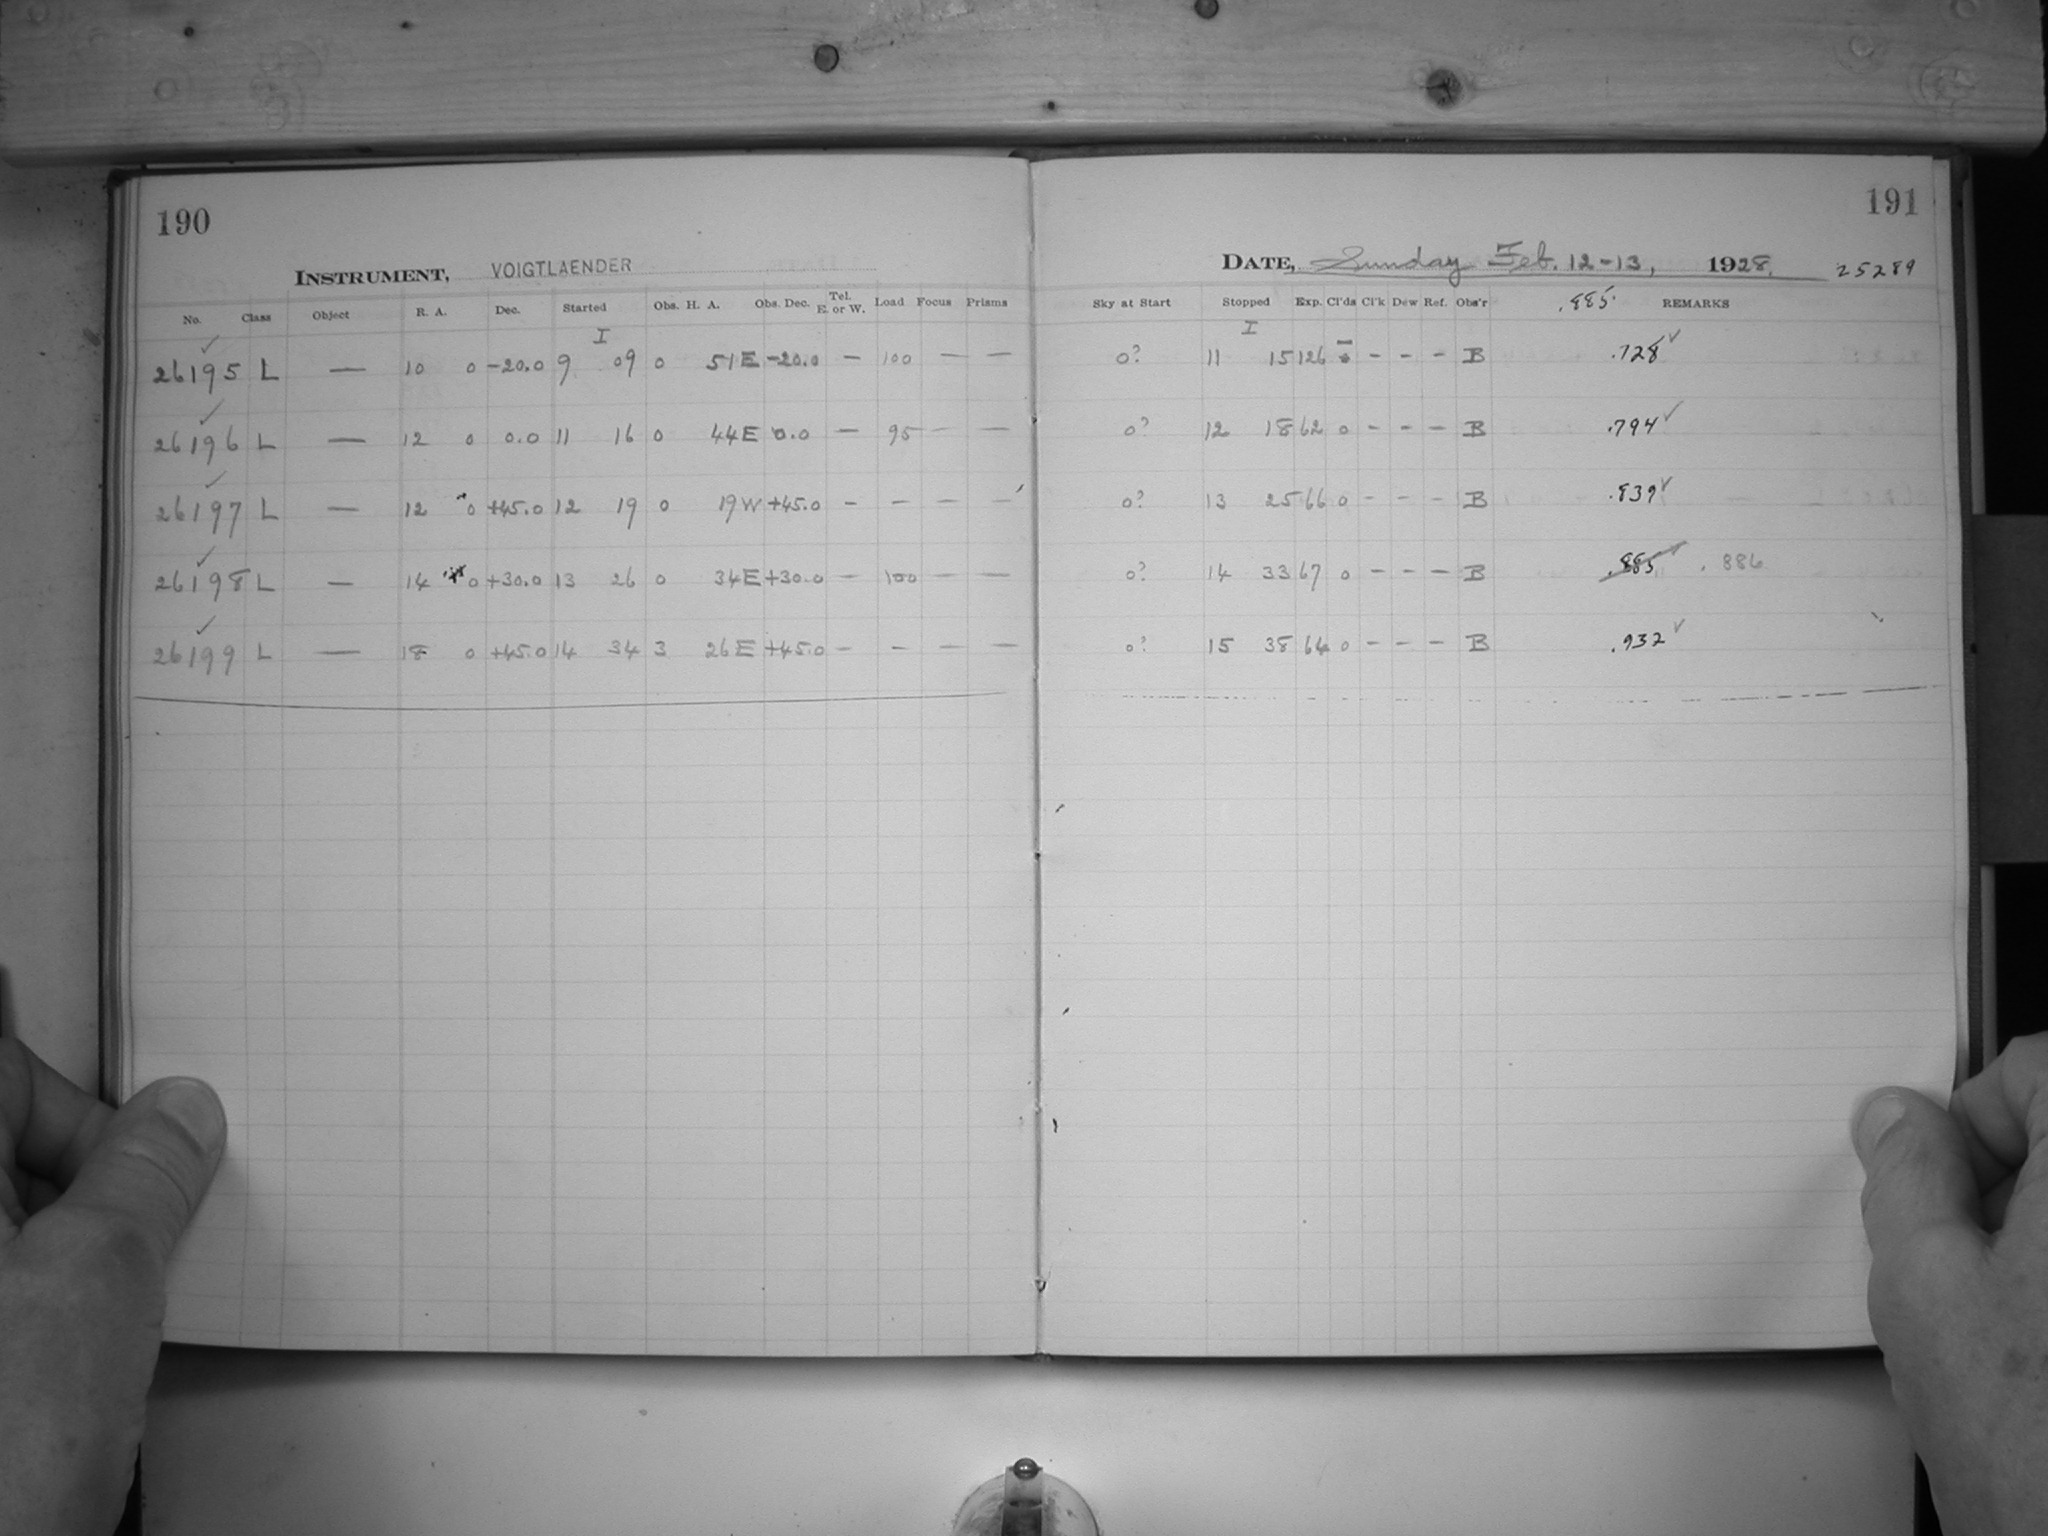 190
191
INSTRUMENT, VOIGTLAENDER
DATE, Sunday Feb. 12-13, 1928. 25289
No. Class Object R. A. Dec. Started Obs. H. A. Obs. Dec. Tel. E. or W. Load Focus Prisms Sky at Start Stopped Exp. Cl'ds Cl'k Dew Ref. Obs'r .885 REMARKS
I I
26195 L — 10 0 -20.0 9 09 0 51E -20.0 — 100 — — 0? 11 15 126 - - - B .728 ✓
26196 L — 12 0 0.0 11 16 0 44E 0.0 — 95 — — 0? 12 18 62 0 - - - B .794 ✓
26197 L — 12 0 +45.0 12 19 0 19W +45.0 - - — — 0? 13 25 66 0 - - - B .839 ✓
26198 L — 14 0 +30.0 13 26 0 34E +30.0 — 100 — — 0? 14 33 67 0 - - - B .885 ✓ .886
26199 L — 18 0 +45.0 14 34 3 26E +45.0 - - — — 0? 15 38 64 0 - - - B .932 ✓